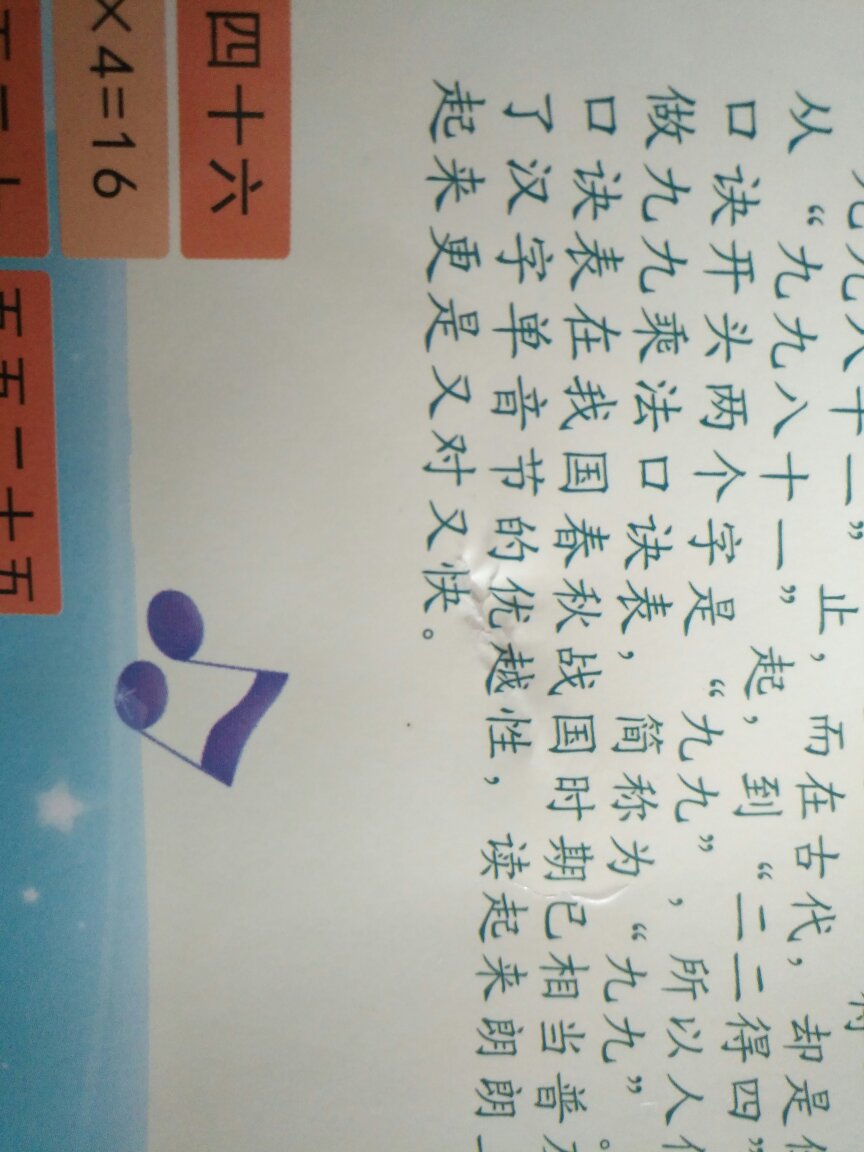 九九八十一”止，而在古代，却是
从“九九八十一”起，到“二二得四”
口诀开头两个字是“九九”，所以人
做九九乘法口诀表，简称为“九九”。
口诀表在我国春秋战国时期已相当普
了汉字单音节的优越性，读起来朗朗
起来更是又对又快。
四十六
×4=16
五五二十五